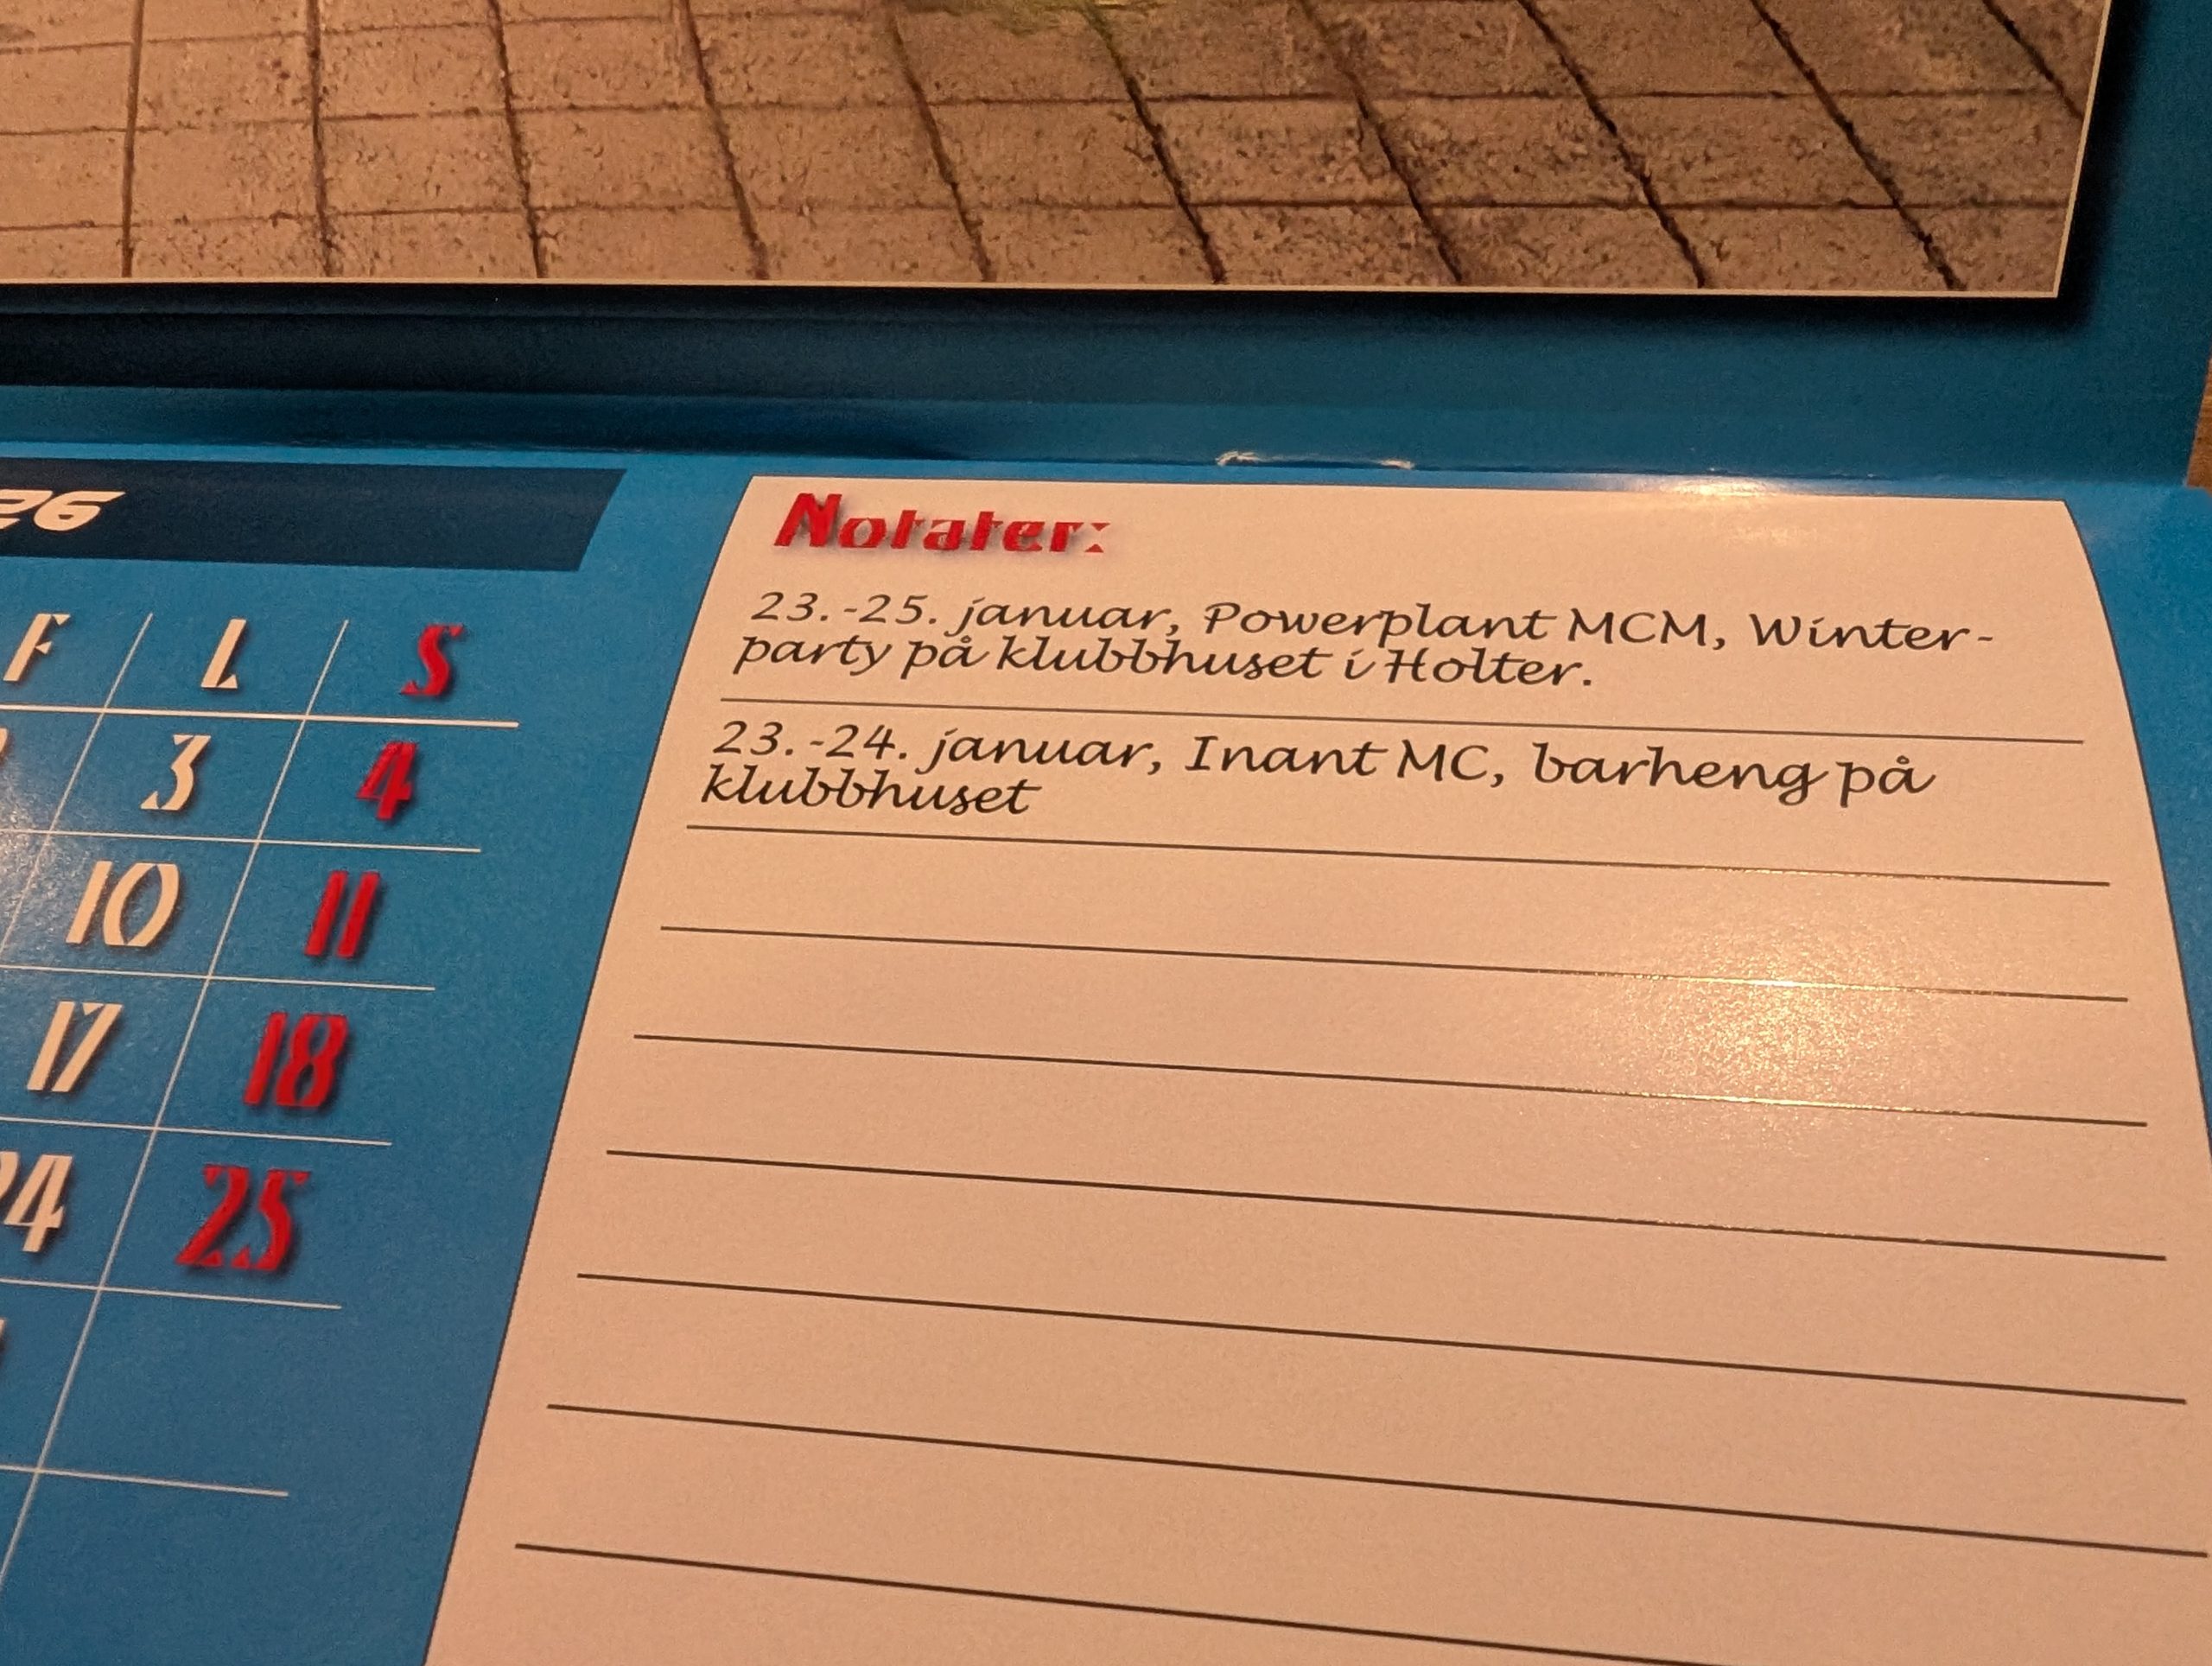 26
Notater:
23.-25. januar, Powerplant MCM, Winter-
party på klubbhuset i Holter.
23.-24. januar, Inant MC, barheng på
klubbhuset
F L S
3 4
10 11
17 18
24 25